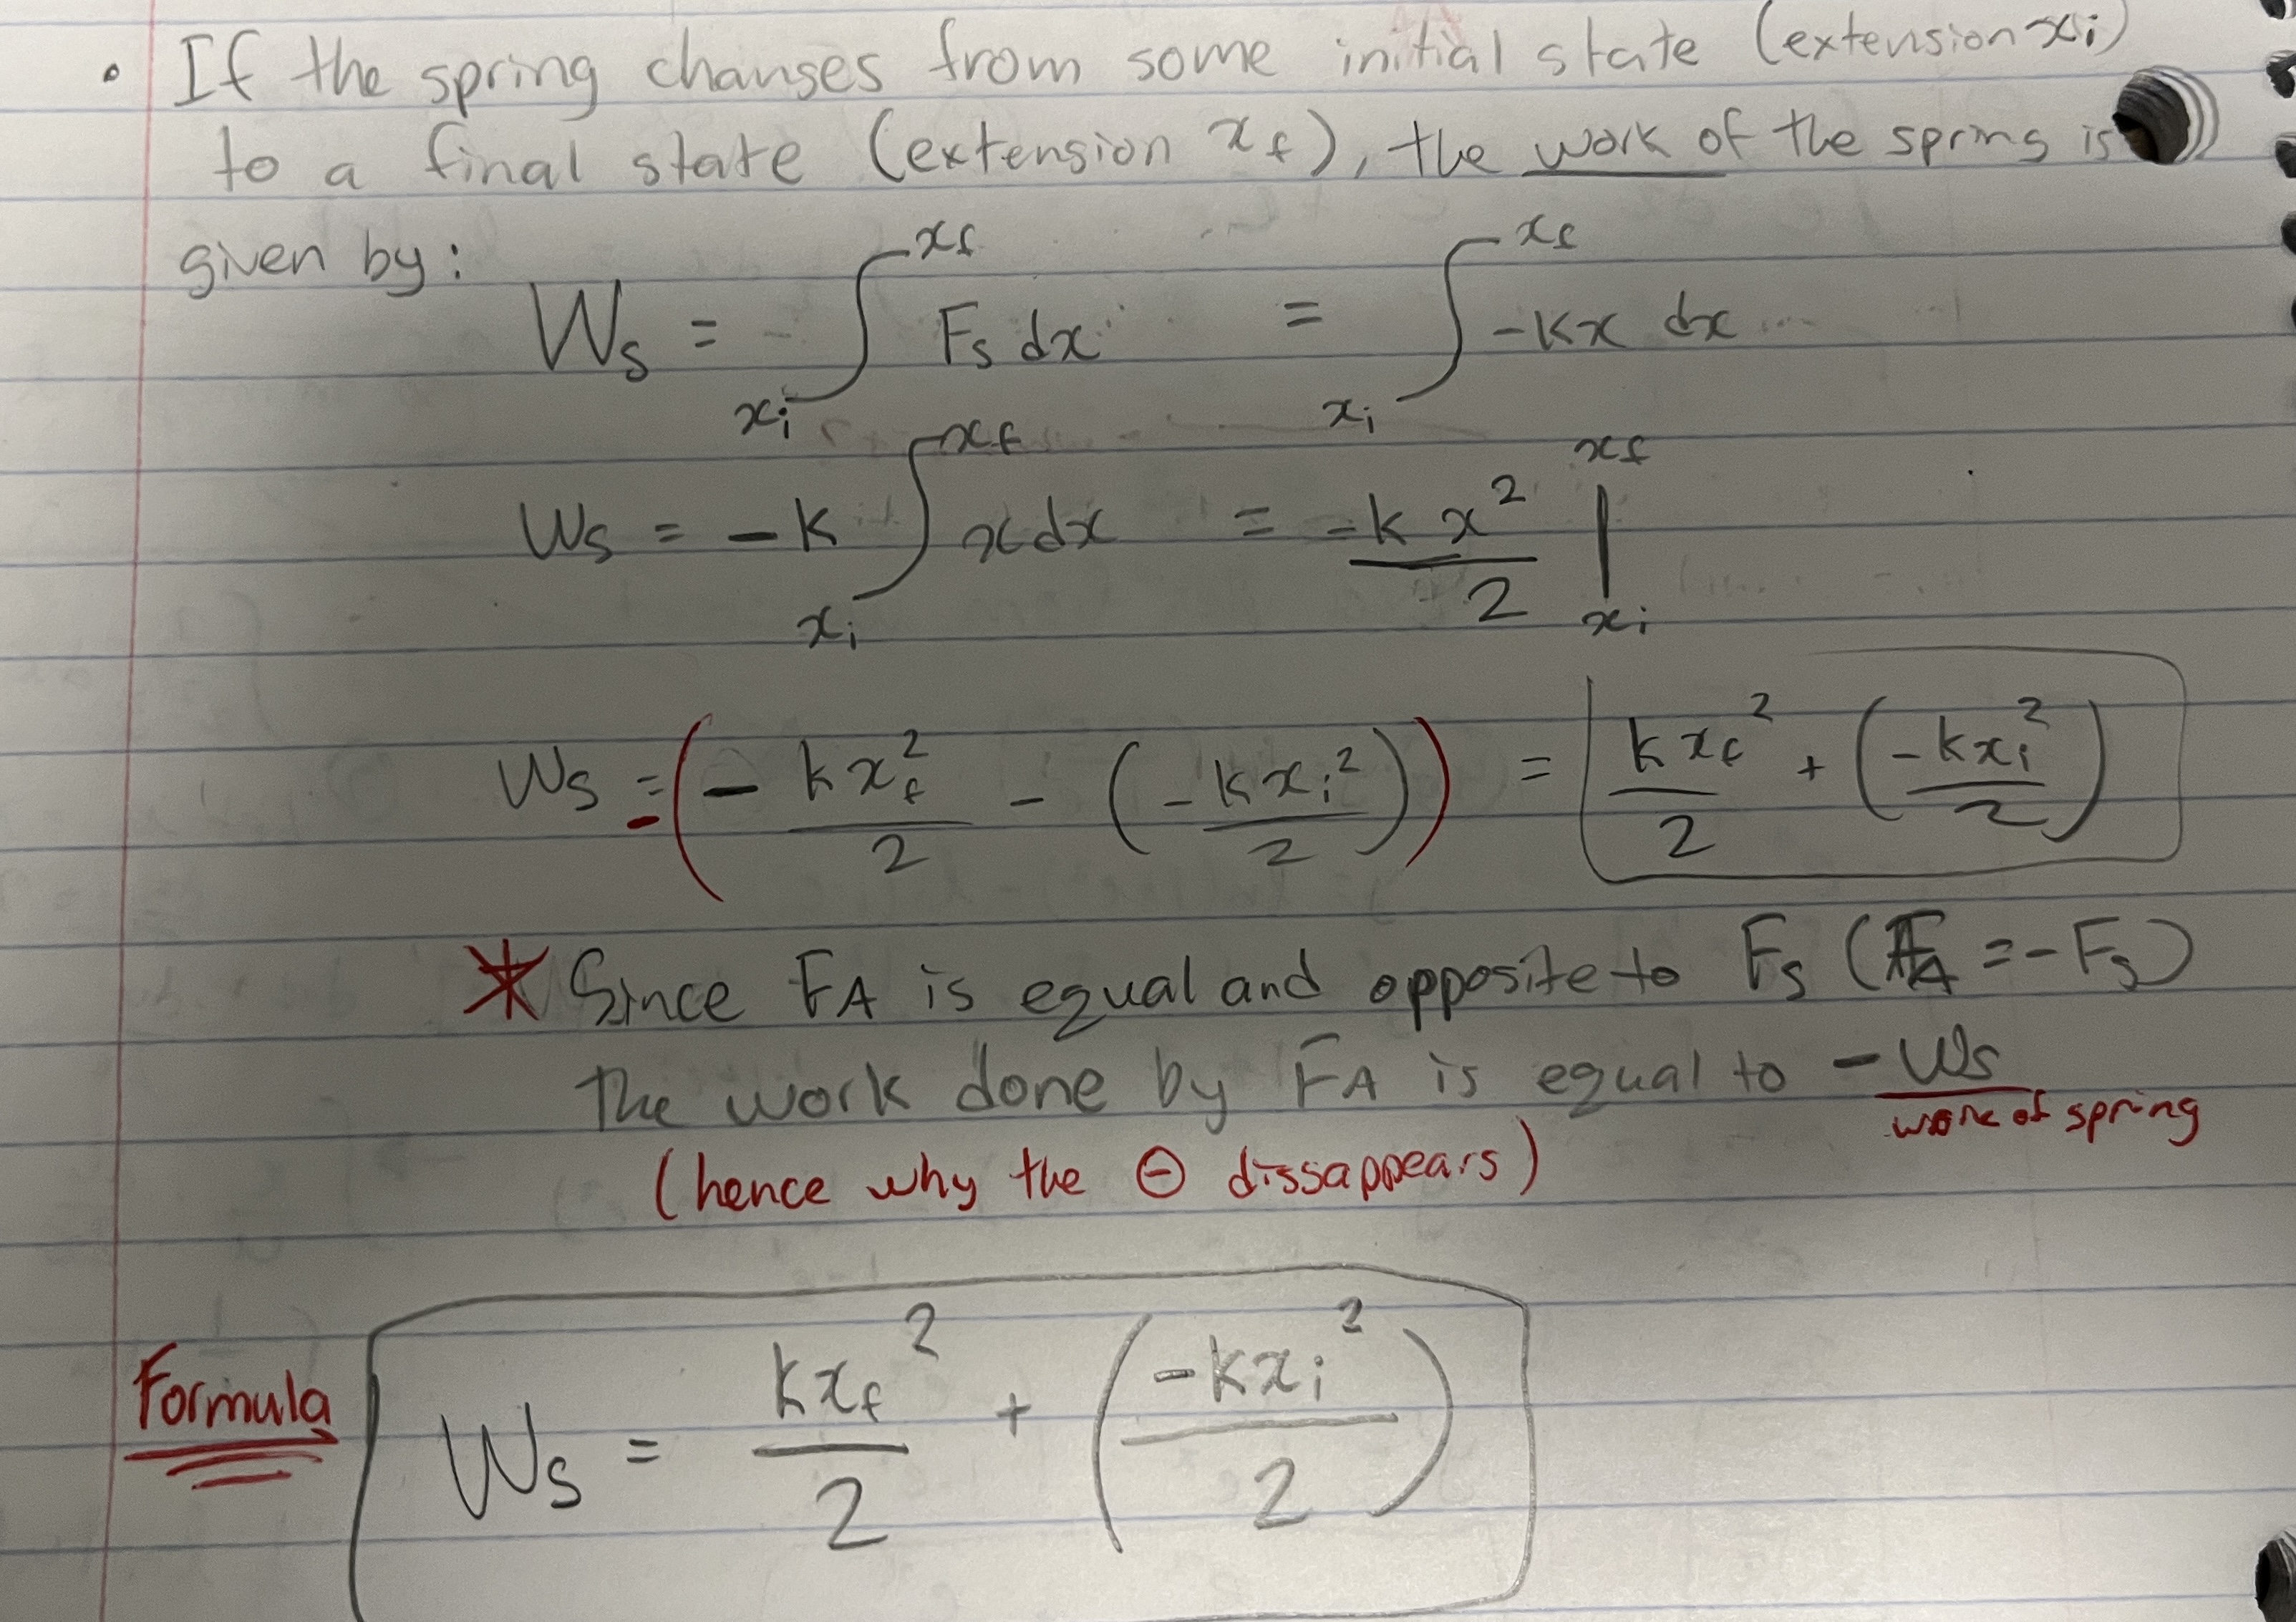 • If the spring changes from some initial state (extension xi)
to a final state (extension xf), the work of the spring is
given by:
Ws = ∫_{xi}^{xf} Fs dx = ∫_{xi}^{xf} -kx dx
Ws = -k ∫_{xi}^{xf} x dx = -kx²/2 |_{xi}^{xf}
Ws = -(- kxf²/2 - (-kxi²/2)) = kxf²/2 + (-kxi²/2)
* Since FA is equal and opposite to Fs (FA = -Fs)
the work done by FA is equal to - Ws
work of spring
(hence why the ⊖ dissappears)
Formula
Ws = kxf²/2 + (-kxi²/2)